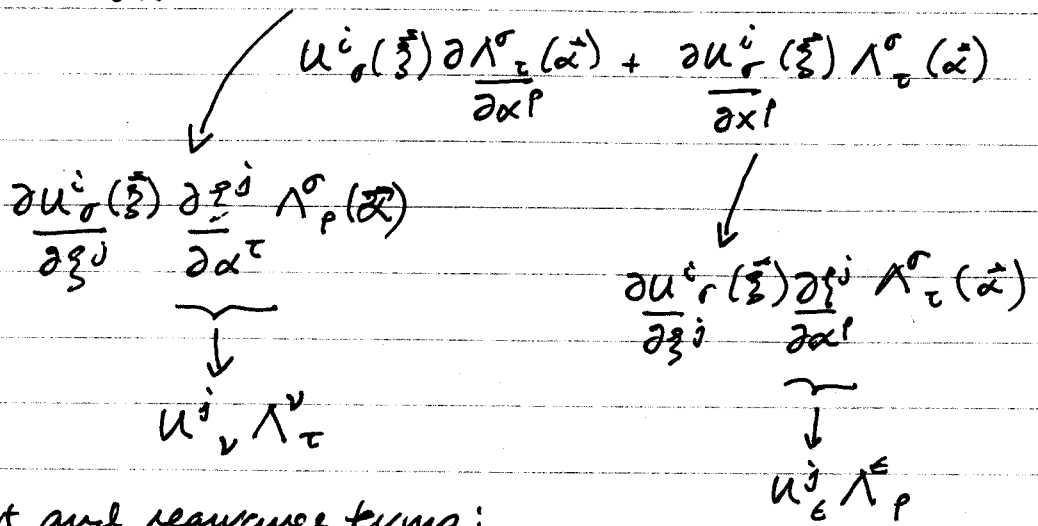 u^i_σ(ξ⃗) ∂Λ^σ_τ(α⃗)/∂α^ρ + ∂u^i_σ(ξ⃗)/∂x^ρ Λ^σ_τ(α⃗)
∂u^i_σ(ξ⃗)/∂ξ^j ∂ξ^j/∂α^τ Λ^σ_ρ(α⃗)
∂u^i_σ(ξ⃗)/∂ξ^j ∂ξ^j/∂α^ρ Λ^σ_τ(α⃗)
u^j_ν Λ^ν_τ
u^j_ε Λ^ε_ρ
and rearrange terms: